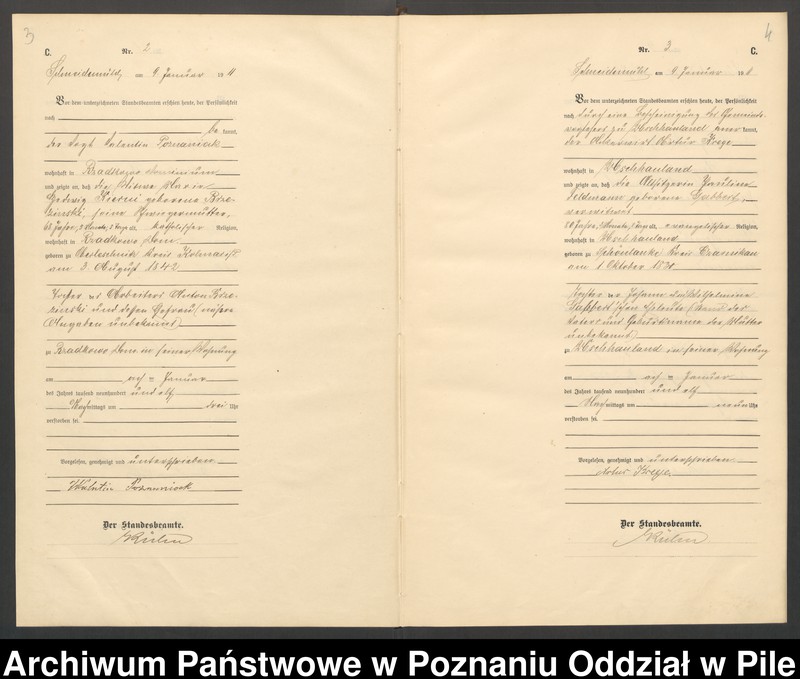 3
C.
Nr. 2
Schneidemühl, am 9. Januar 1911
Vor dem unterzeichneten Standesbeamten erschien heute, der Persönlichkeit
nach
be kannt,
der Vogt Valentin Poznaniack
wohnhaft in Bradkowo
und zeigte an, daß die
Hedwig geborene
seine Schwiegermutter,
68 Jahre, 5 Monate, 5 Tage alt, katholischer Religion,
wohnhaft in Bradkowo Dom.
geboren zu Kreis
am 3. August 1842
Tochter des Arbeiters Anton
und dessen Ehefrau, nähere
Angaben unbekannt
zu Bradkowo Dom. in seiner Wohnung
am acht Januar
des Jahres tausend neunhundert und elf
Nachmittags um drei Uhr
verstorben sei.
Vorgelesen, genehmigt und unterschrieben
Valentin Poznaniack
Der Standesbeamte.
4
Nr. 3
C.
Schneidemühl, am 9. Januar 1911
Vor dem unterzeichneten Standesbeamten erschien heute, der Persönlichkeit
nach durch eine Bescheinigung des Gemeinde-
vorstehers zu kannt,
der Artur
wohnhaft in
und zeigte an, daß die Altsitzerin Pauline
Feldmann geborene
verwitwet
80 Jahre, 3 Monate, Tage alt, evangelischer Religion,
wohnhaft in
geboren zu Schönlanke Kreis Czarnikau
am 1. Oktober 1830
Tochter der Johann und Wilhelmine
schen Eheleute, Stand des
Vaters und Geburtsname der Mutter
unbekannt
zu in seiner Wohnung
am acht Januar
des Jahres tausend neunhundert und elf
mittags um neun Uhr
verstorben sei.
Vorgelesen, genehmigt und unterschrieben
Artur
Der Standesbeamte.
Archiwum Państwowe w Poznaniu Oddział w Pile